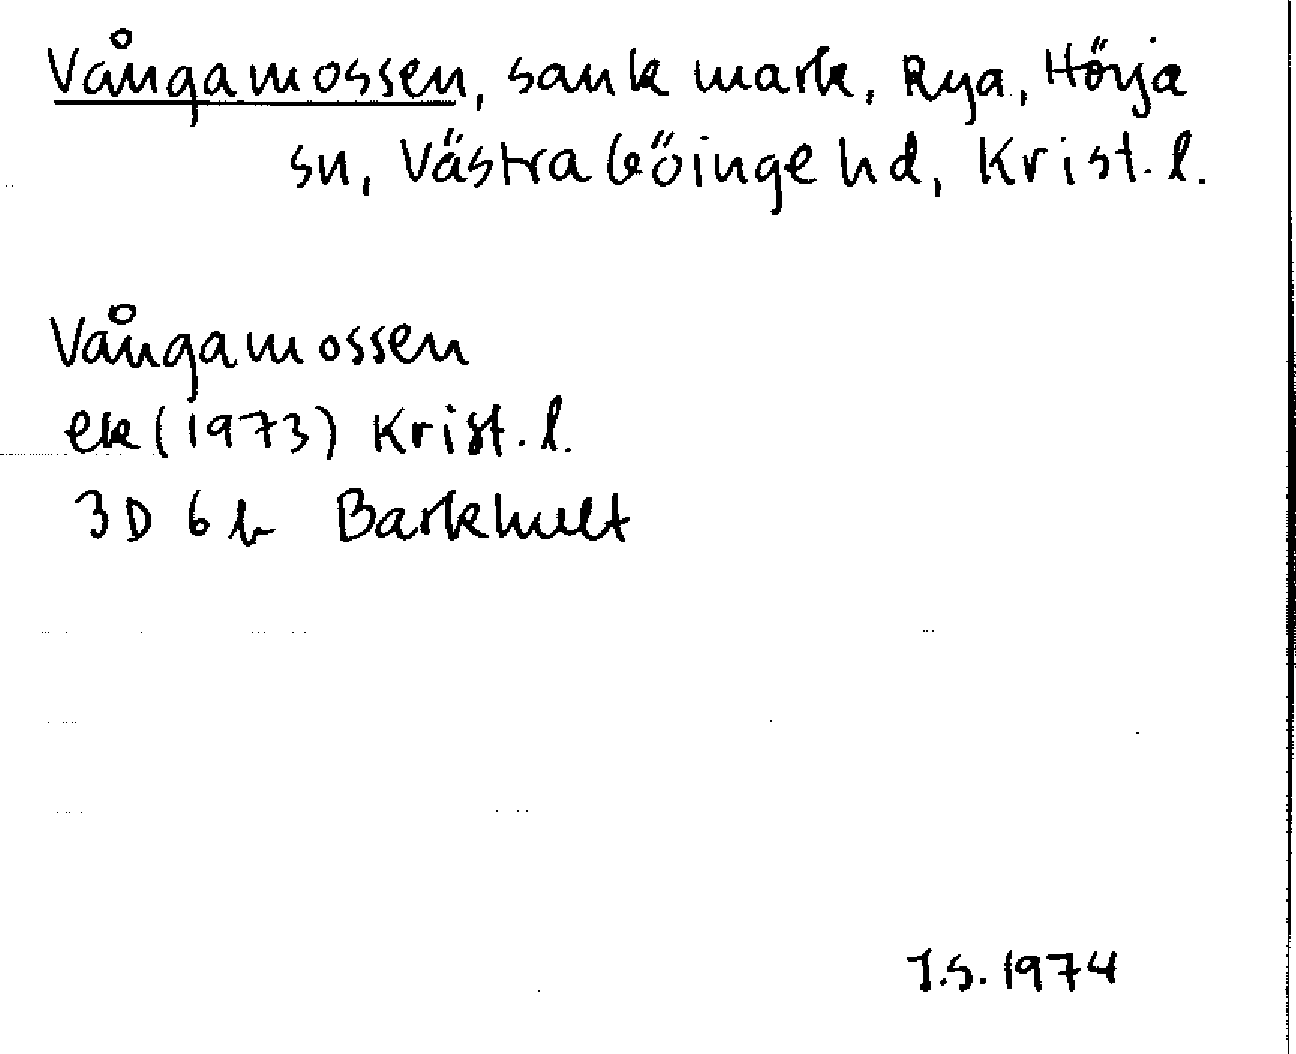 Vångamossen, sank mark, Rya, Hörja
sn, Västra Göinge hd, Krist. l.
Vångamossen
ek (1973) Krist. l.
3D 6b Barkhult
I.S. 1974